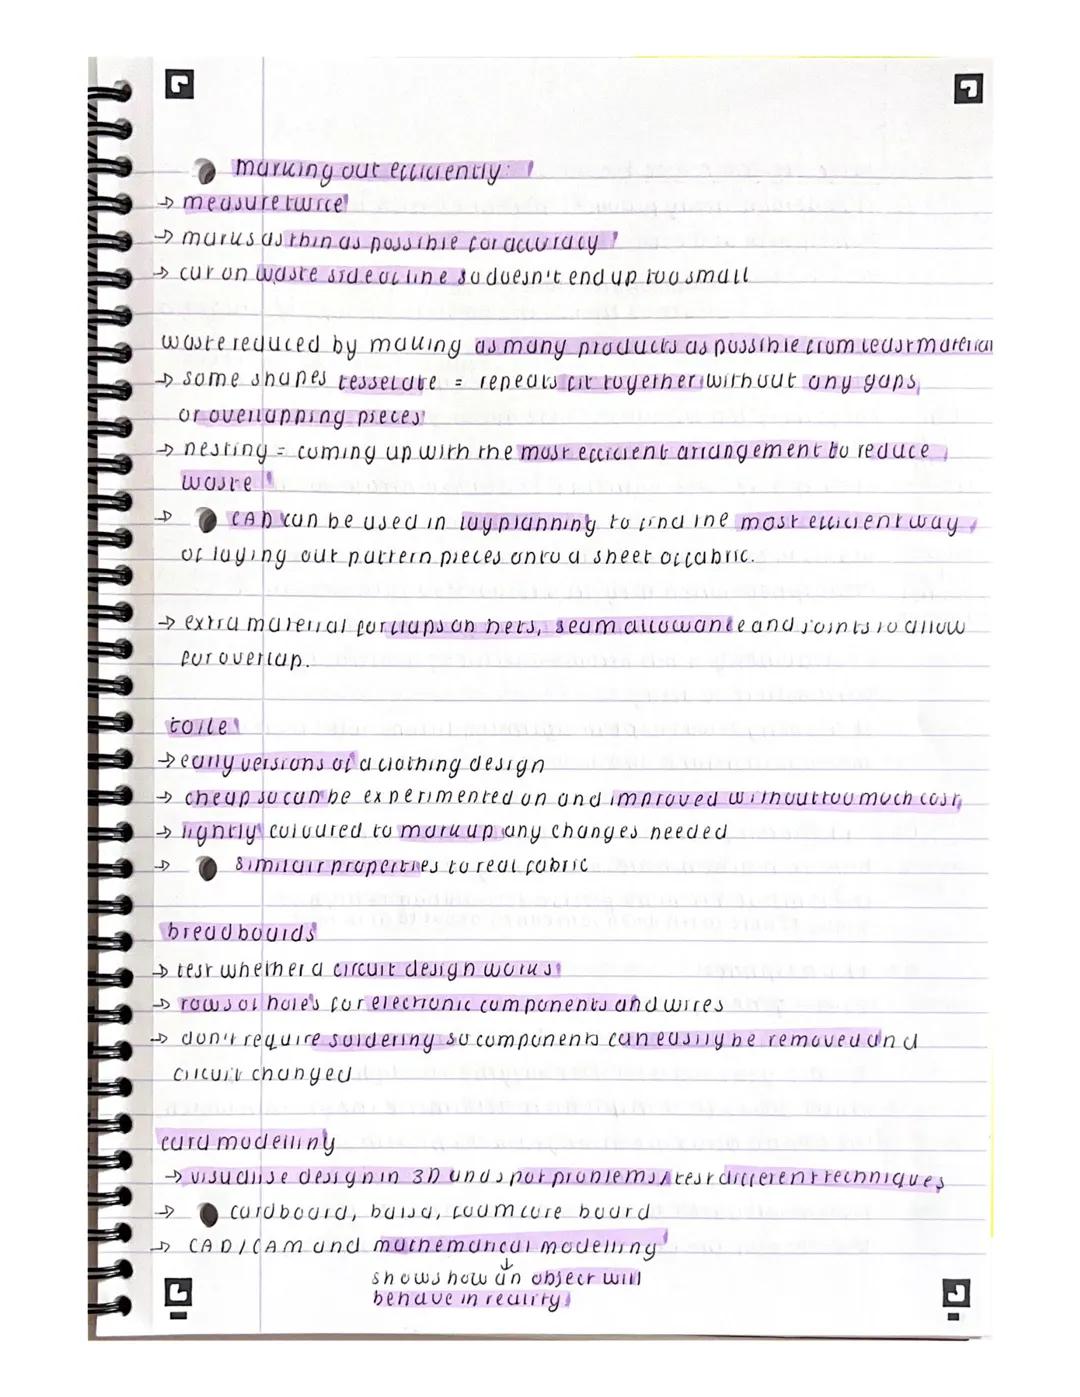 marking out efficiently:
→ measure twice
→ marks as thin as possible for accuracy
→ cut on waste side of line so doesn't end up too small
waste reduced by making as many products as possible from least material
→ some shapes tesselate = repeats fit together without any gaps
or overlapping pieces
→ nesting = coming up with the most efficient arrangement to reduce
waste
→ CAD can be used in lay planning to find the most efficient way
of laying out pattern pieces onto a sheet of fabric.
→ extra material for flaps on nets, seam allowance and joints to allow
for overlap.
toile
→ early versions of a clothing design
→ cheap so can be experimented on and improved without too much cost
→ lightly coloured to mark up any changes needed
→ similair properties to real fabric
breadboards
→ test whether a circuit design works
→ rows of hole's for electronic components and wires
→ don't require soldering so components can easily be removed and
circuit changed
card modelling
→ visualise design in 3D and spot problems / test different techniques
→ cardboard, balsa, foamcore board
→ CAD/CAM and mathematical modelling
↓
shows how an object will
behave in reality